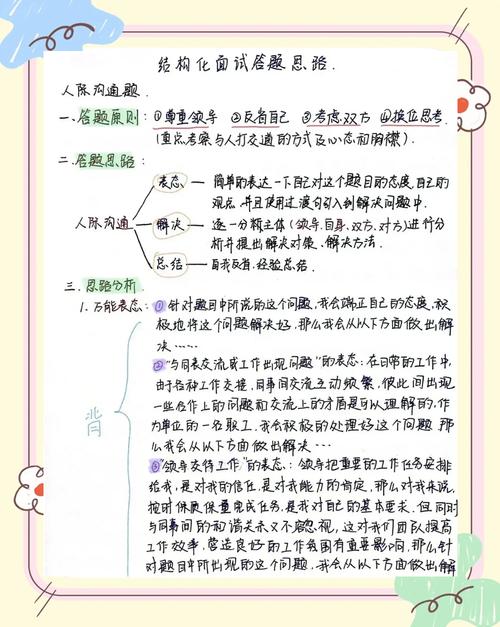 结构化面试答题思路.
人际沟通题.
一、答题原则: ①尊重领导 ②反省自己 ③考虑双方 ④换位思考.
(重点考察与人打交道的方式及心态和胸襟).
二、答题思路:
表态 — 简单的表达一下自己对这个题目的态度,自己的
观点,并且使用过渡句引入到解决问题中.
人际沟通 解决 — 逐一分析主体(领导、自身、双方、对方)进行分
析并提出解决对策、解决方法.
总结 — 自我反省、经验总结.
三、思路分析
1.万能表态: ①针对题目中所说的这个问题,我会端正自己的态度,积
极地将这个问题解决好,那么我会从以下方面做出解
决……
②"与同事交流或工作出现问题"的表态:在日常的工作中,
由于各种工作交接,同事间交流互动频繁,彼此间出现
一些合作上的问题和交流上的矛盾是可以理解的,作
为单位的一名职工,我会积极的处理好这个问题,那
么我会从以下方面做出解决…
背
③"领导交待工作"的表态:领导把重要的工作任务安排
给我,是对我的信任,是对我能力的肯定,那么对我来说,
按时保质保量完成任务,是我对自己的基本要求.但同时
与同事间的和谐关系又不容忽视,这对我们团队提高
工作效率,营造良好的工作氛围有重要影响,那么针
对题目中所出现的这个问题,我会从以下方面做出解